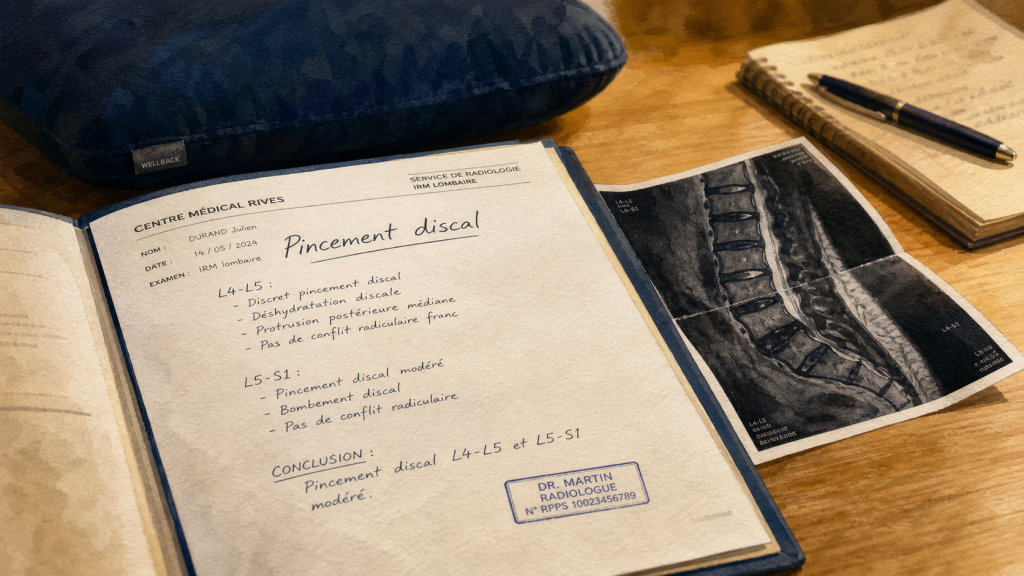 WELLBACK
CENTRE MÉDICAL RIVES
SERVICE DE RADIOLOGIE
IRM LOMBAIRE
NOM : DURAND Julien
DATE : 14 / 05 / 2024
EXAMEN : IRM lombaire
Pincement discal
L4-L5 :
- Discret pincement discal
- Déshydratation discale
- Protrusion postérieure médiane
- Pas de conflit radiculaire franc
L5-S1 :
- Pincement discal modéré
- Bombement discal
- Pas de conflit radiculaire
CONCLUSION :
Pincement discal L4-L5 et L5-S1
modéré.
DR. MARTIN
RADIOLOGUE
N° RPPS 10023456789
L4-L5
L4-S1
L4-L5